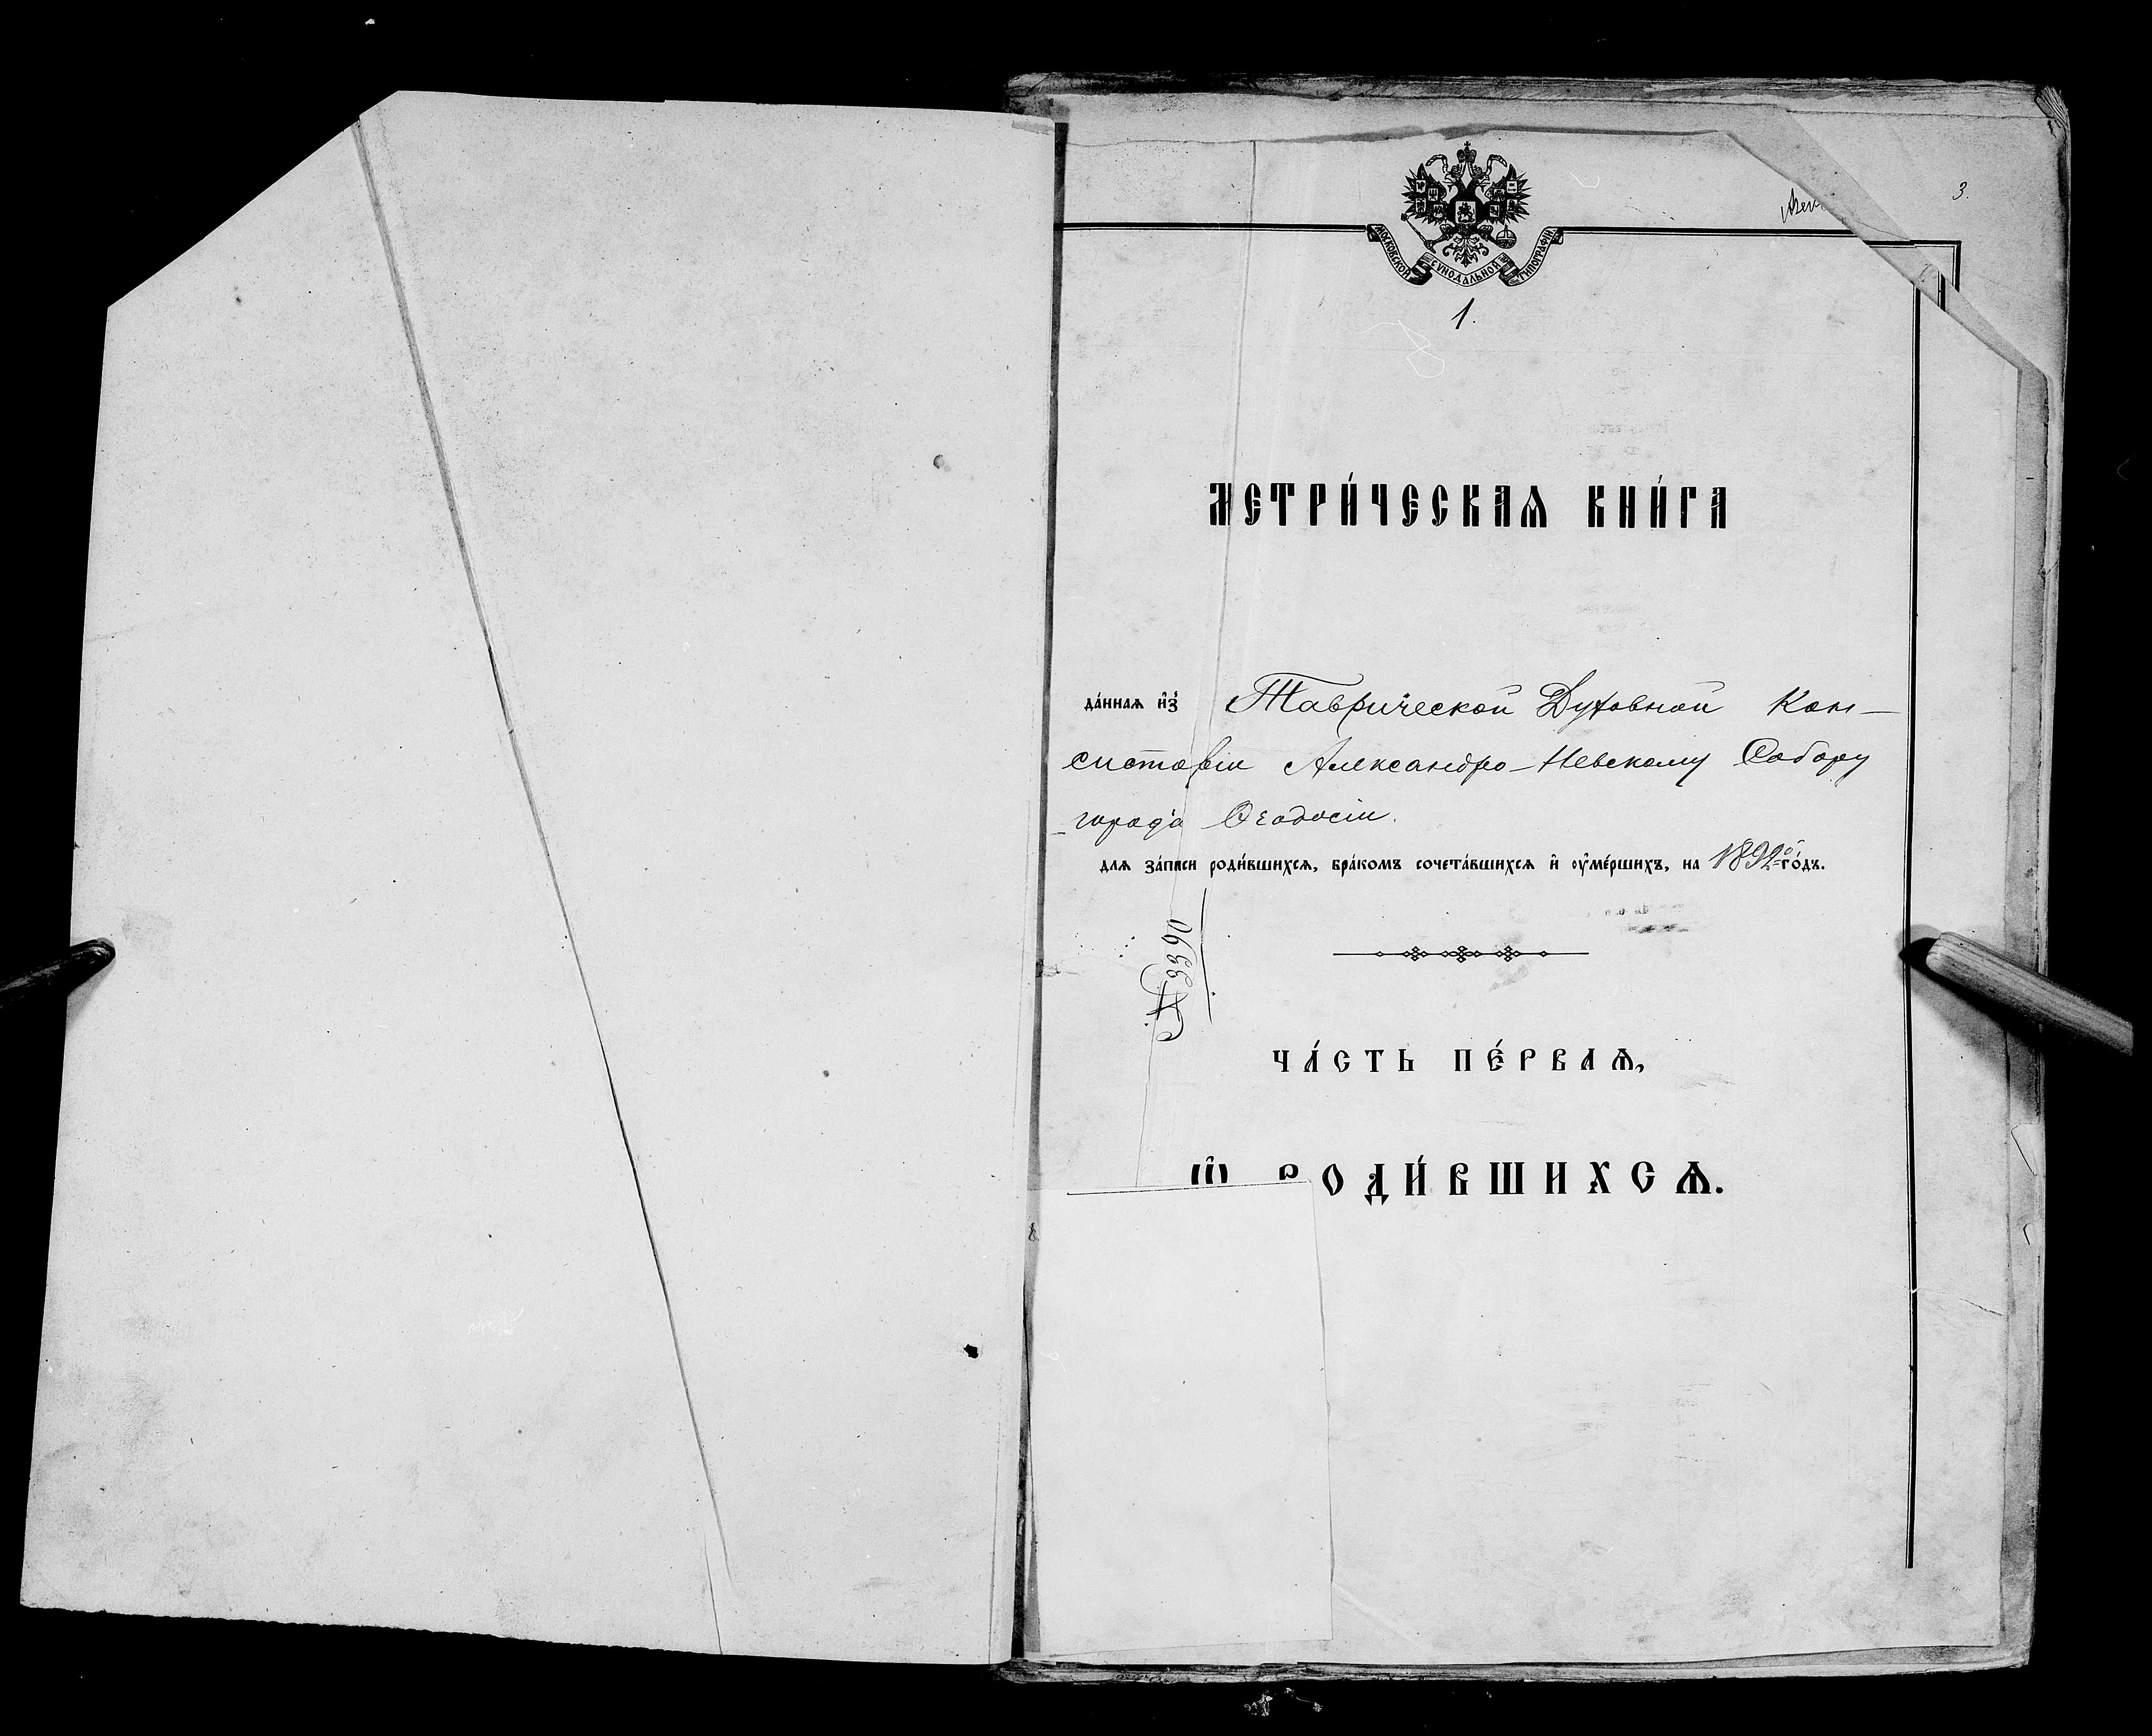 3.
МОСКОВСКОЙ СѴНОДАЛЬНОЙ ТИПОГРАФІИ
1.
МЕТРИ́ЧЕСКАѦ КНИ́ГА
да́ннаѧ и҆з̾ Таврической Духовной Кон-
систоріи Александро-Невскому Собору
города Ѳеодосіи.
длѧ за́писи роди́вшихсѧ, бра́комъ сочета́вшихсѧ и҆ ѹ҆ме́ршихъ, на 1892й го́дъ.
№ 3390
ЧА́СТЬ ПЕ́РВАѦ,
Ѡ҆ РОДИ́ВШИХСѦ.